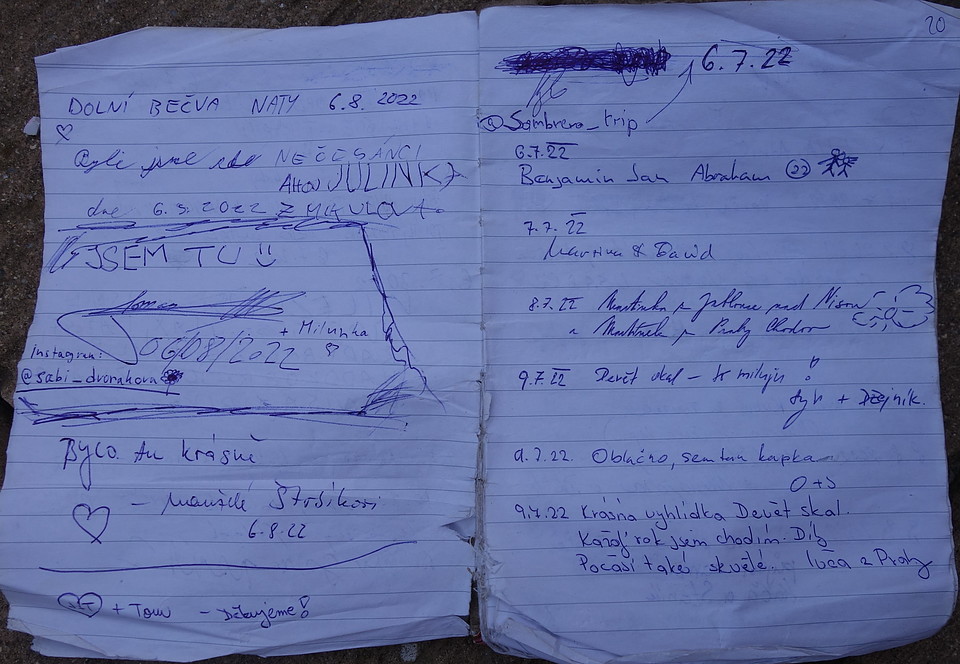 DOLNÍ BEČVA NATY 6.8.2022
Byli jsme zde NEČESÁNCI
JULINK
dne 6.8.2022 Z MIKULOVA
JSEM TU
+ Milunka
06/08/2022
instagram:
@sabi_dvorakova
Bylo tu krásně
– manželé
6.8.22
+ Tom – Děkujeme!
20
6.7.22
@Sombrero_trip
6.7.22
Benjamin Jan Abraham 22
7.7.22
Martina & David
8.7.22 Martinka z Jablonce nad Nisou
a Martínek z Prahy Chodov
9.7.22 Devět skal – miluju !
+
9.7.22. Oblačno, sem tam kapka
O+S
9.7.22 Krásná vyhlídka Devět skal.
Každý rok jsem chodím. Díky
Počasí také skvělé. Iva z Prahy